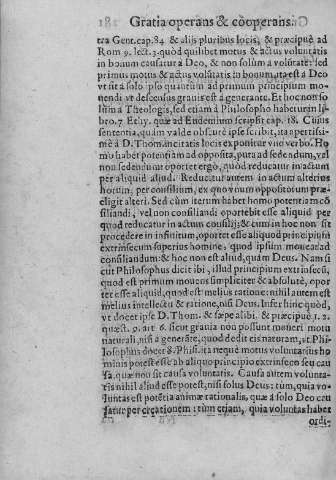 Gratia operans & cooperans.
tra Gent. cap. 84 & alijs pluribus locis, & præcipuè ad
Rom 9. lect. 3. quòd quilibet motus & actus voluntatis
in bonum causatur à Deo, & non solùm à volūtate: sed
primus motus & actus voluntatis in bonum, ita est à Deo
vt sit à solo ipso quantum ad primum principium mo-
nendi vt descensus grauis est à generante. Et hoc non so
lùm à Theologis, sed etiam à Philosopho habetur in li-
bro. 7 Ethy. quæ ad Eudemium scripsit cap. 18. Cuius
sententia, quàm valde obscurè ipse scribit, ita apertissi-
mè à D. Thom. in citatis locis exponitur vno verbo. Ho
mo habet potentiam ad opposita, puta ad sedendum, vel
non sedendum: oportet ergo, quòd reducatur in actum
per aliquid aliud. Reducitur autem in actum alterius
horum, per consilium, ex quo vnum oppositorum præ-
eligit alteri. Sed cùm iterum habet homo potentiam cō
siliandi, vel non consiliandi oportebit esse aliquid per
quod reducatur in actum consilij; & cum in hoc non sit
procedere in infinitum, oportet esse aliquod principiũ
extrinsecum superius homine, quod ipsum moueat ad
consiliandum: & hoc non est aliud, quàm Deus. Nam si
cut Philosophus dicit ibi, illud principium extrinsecū,
quod est primum mouens simpliciter & absolutè, opor
ter esse aliquid, quod est melius ratione: nihil autem est
melius intellectu & ratione, nisi Deus. Infert hinc quòd,
vt docet ipse D. Thom. & sæpe alibi, & præcipuè 1. 2.
quæst. 9. art 6. sicut grauia non possunt moueri motu
naturali, nisi à generāte, quod dedit eis naturam, vt Phi-
losophus docet 8. Phis. ita neque motus voluntarius ho
minis potest esse ab aliquo principio extrinseco seu cau
sa. quæ non sit causa voluntatis. Causa autem volunta-
tis nihil aliud esse potest, nisi solus Deus: tùm, quia vo-
luntas est potētia animæ rationalis, quæ à solo Deo cau
satur per creationem: tùm etiam, quia voluntas habet
ordi-